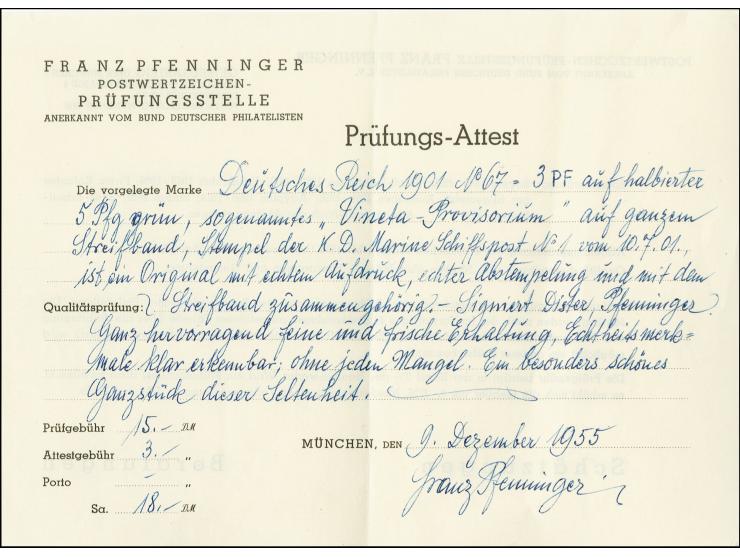 FRANZ PFENNINGER
POSTWERTZEICHEN-
PRÜFUNGSSTELLE
ANERKANNT VOM BUND DEUTSCHER PHILATELISTEN
Prüfungs-Attest
Die vorgelegte Marke Deutsches Reich 1901 No 67 = 3 PF auf halbierter
5 Pfg grün, sogenanntes „Vineta-Provisorium" auf ganzem
Streifband, Stempel der K. D. Marine Schiffspost No 1 vom 10.7.01.,
ist ein Original mit echtem Aufdruck, echter Abstempelung und mit dem
Qualitätsprüfung: Streifband zusammengehörig. – Signiert Dister, Pfenninger.
Ganz hervorragend feine und frische Erhaltung, Echtheitsmerk=
male klar erkennbar, ohne jeden Mangel. Ein besonders schönes
Ganzstück dieser Seltenheit.
Prüfgebühr 15.– DM
Attestgebühr 3.– „
Porto – „
Sa. 18.– DM
MÜNCHEN, DEN 9. Dezember 1955
Franz Pfenninger